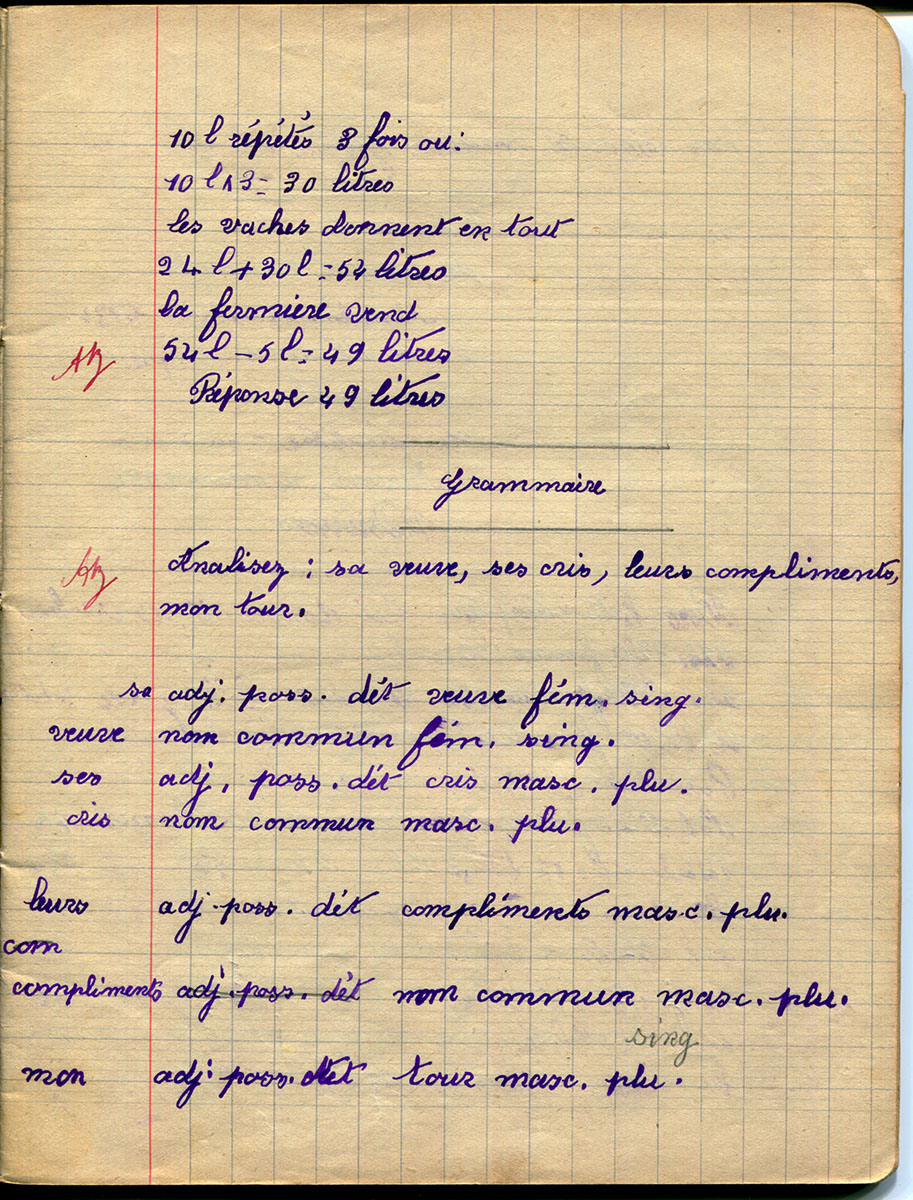 10 l répétés 3 fois ou:
10 l x 3 = 30 litres
les vaches donnent en tout
24 l + 30 l = 54 litres
la fermière vend
54 l - 5 l = 49 litres
Réponse 49 litres
Grammaire
Analisez : sa veuve, ses cris, leurs compliments,
mon tour.
sa adj. poss. dét veuve fém. sing.
veuve nom commun fém. sing.
ses adj. poss. dét cris masc. plu.
cris nom commun masc. plu.
leurs adj. poss. dét compliments masc. plu.
com
compliments adj. poss. dét nom commun masc. plu.
sing
mon adj. poss. dét tour masc. plu.